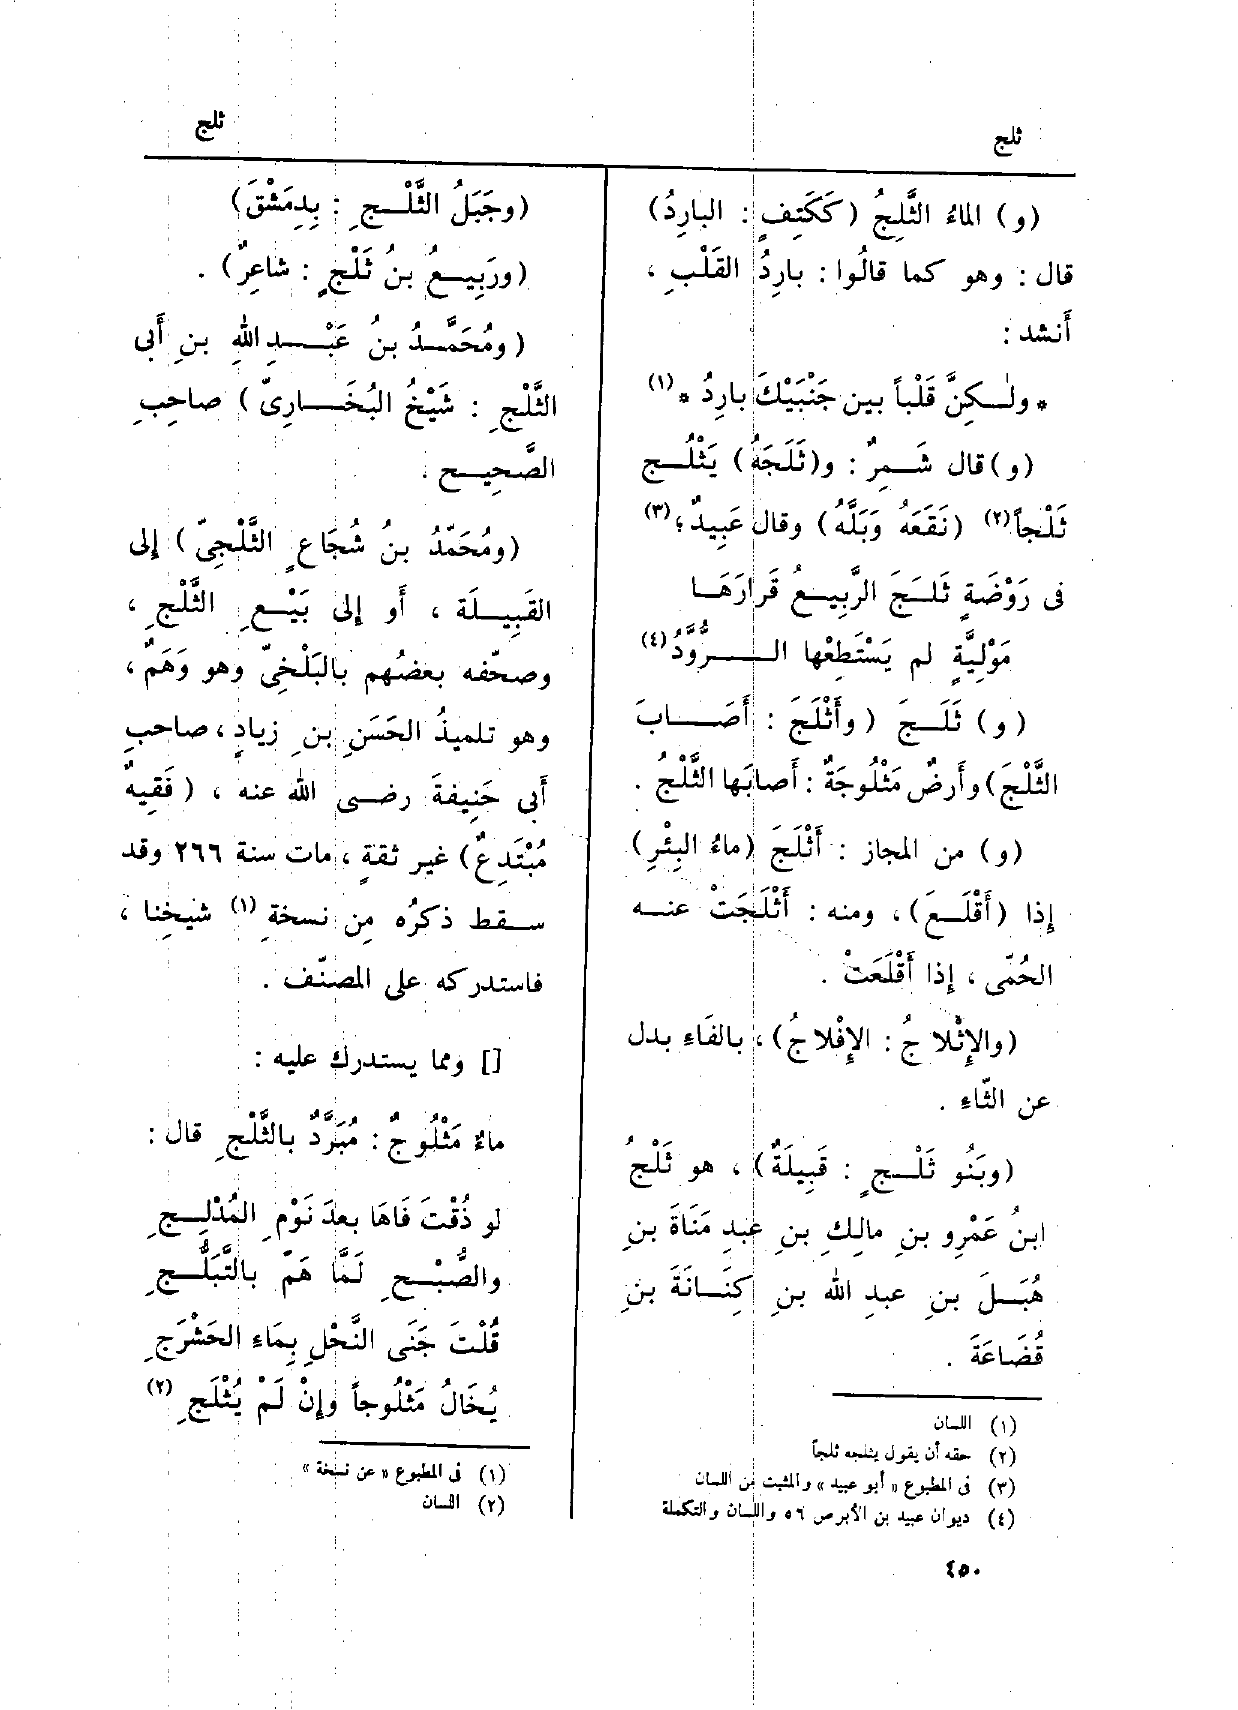 ثلج
ثلج
(و) الماءُ الثَّلِجُ (كَكَتِفٍ : البارِدُ)
قال : وهو كما قالُوا : بارِدُ القَلْبِ ،
أَنشد :
* ولٰـكِنَّ قَلْباً بين جَنْبَيْكَ بارِدُ * (١)
(و) قال شَمِرٌ : و(ثَلَجَهُ) يَثْلُـج
ثَلْجاً (٢) (نَقَعَهُ وَبَلَّهُ) وقال عَبِيدٌ ؛ (٣)
فى رَوْضَةٍ ثَلَجَ الرَّبِيعُ قَرارَهَا
مَوْلِيَّةٍ لم يَسْتَطِعْها الـرُّوَّدُ (٤)
(و) ثَلَـجَ (وأَثْلَجَ : أَصَـابَ
الثَّلْجَ) وأَرضٌ مَثْلُوجَةٌ : أَصابَها الثَّلْجُ .
(و) من المجاز : أَثْلَجَ (ماءُ البِئْرِ)
إِذا (أَقْلَـعَ) ، ومنه : أَثْلَجَتْ عنـه
الحُمَّى ، إِذا أَقْلَعَتْ .
(والإِثْلاجُ : الإِفْلاجُ) ، بالفَاءِ بدل
عن الثّاءِ .
(وبَنُو ثَلْـجٍ : قَبِيلَةٌ) ، هو ثَلْجُ
ابنُ عَمْرِو بنِ مالِكِ بنِ عبدِ مَنَاةَ بنِ
هُبَـلَ بنِ عبدِ الله بنِ كِنَـانَةَ بنِ
قُضَاعَةَ .
(١) اللسان
(٢) حقه أن يقول يثلجه ثلجاً
(٣) فى المطبوع « أبو عبيد » والمثبت من اللسان
(٤) ديوان عبيد بن الأبرص ٥٦ واللسان والتكملة
(وجَبَلُ الثَّلْـجِ : بِدِمَشْقَ)
(ورَبِيـعُ بنُ ثَلْجٍ : شاعِرٌ) .
(ومُحَمَّـدُ بنُ عَبْـدِ اللهِ بنِ أَبى
الثَّلْجِ : شَيْخُ البُخَـارِىّ) صاحِبِ
الصَّحِيـح .
(ومُحَمّدُ بنُ شُجَاعٍ الثَّلْجِىّ) إِلى
القَبِيـلَة ، أَو إِلى بَيْـعِ الثَّلْجِ ،
وصحّفه بعضُهم بالبَلْخِىّ وهو وَهَمٌ ،
وهو تلميذُ الحَسَنِ بنِ زيادٍ ، صاحبِ
أَبى حَنِيفةَ رضـى الله عنه ، (فَقِيهٌ
مُبْتَدِعٌ) غير ثقةٍ ، مات سنة ٢٦٦ وقد
سـقط ذكرُه مِن نسخةِ (١) شيخنا ،
فاستدركه على المصنّف .
[] ومما يستدرك عليه :
ماءٌ مَثْلُوجٌ : مُبَرَّدٌ بالثَّلْجِ قال :
لو ذُقْتَ فَاهَا بعدَ نَوْمِ المُدْلِـجِ
والصُّبْـحِ لَمَّا هَمّ بالتَّبَلُّـجِ
قُلْتَ جَنَى النَّحْلِ بِمَاءِ الحَشْرَجِ
يُخَالُ مَثْلُوجاً وإِنْ لَمْ يُثْلَجِ (٢)
(١) فى المطبوع « عن نسخة »
(٢) اللسان
٤٥٠